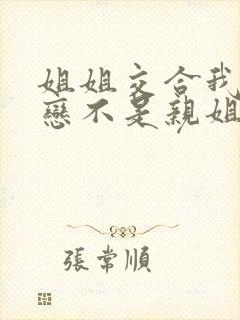 姐姐交合我
戀不是親姐
張常順